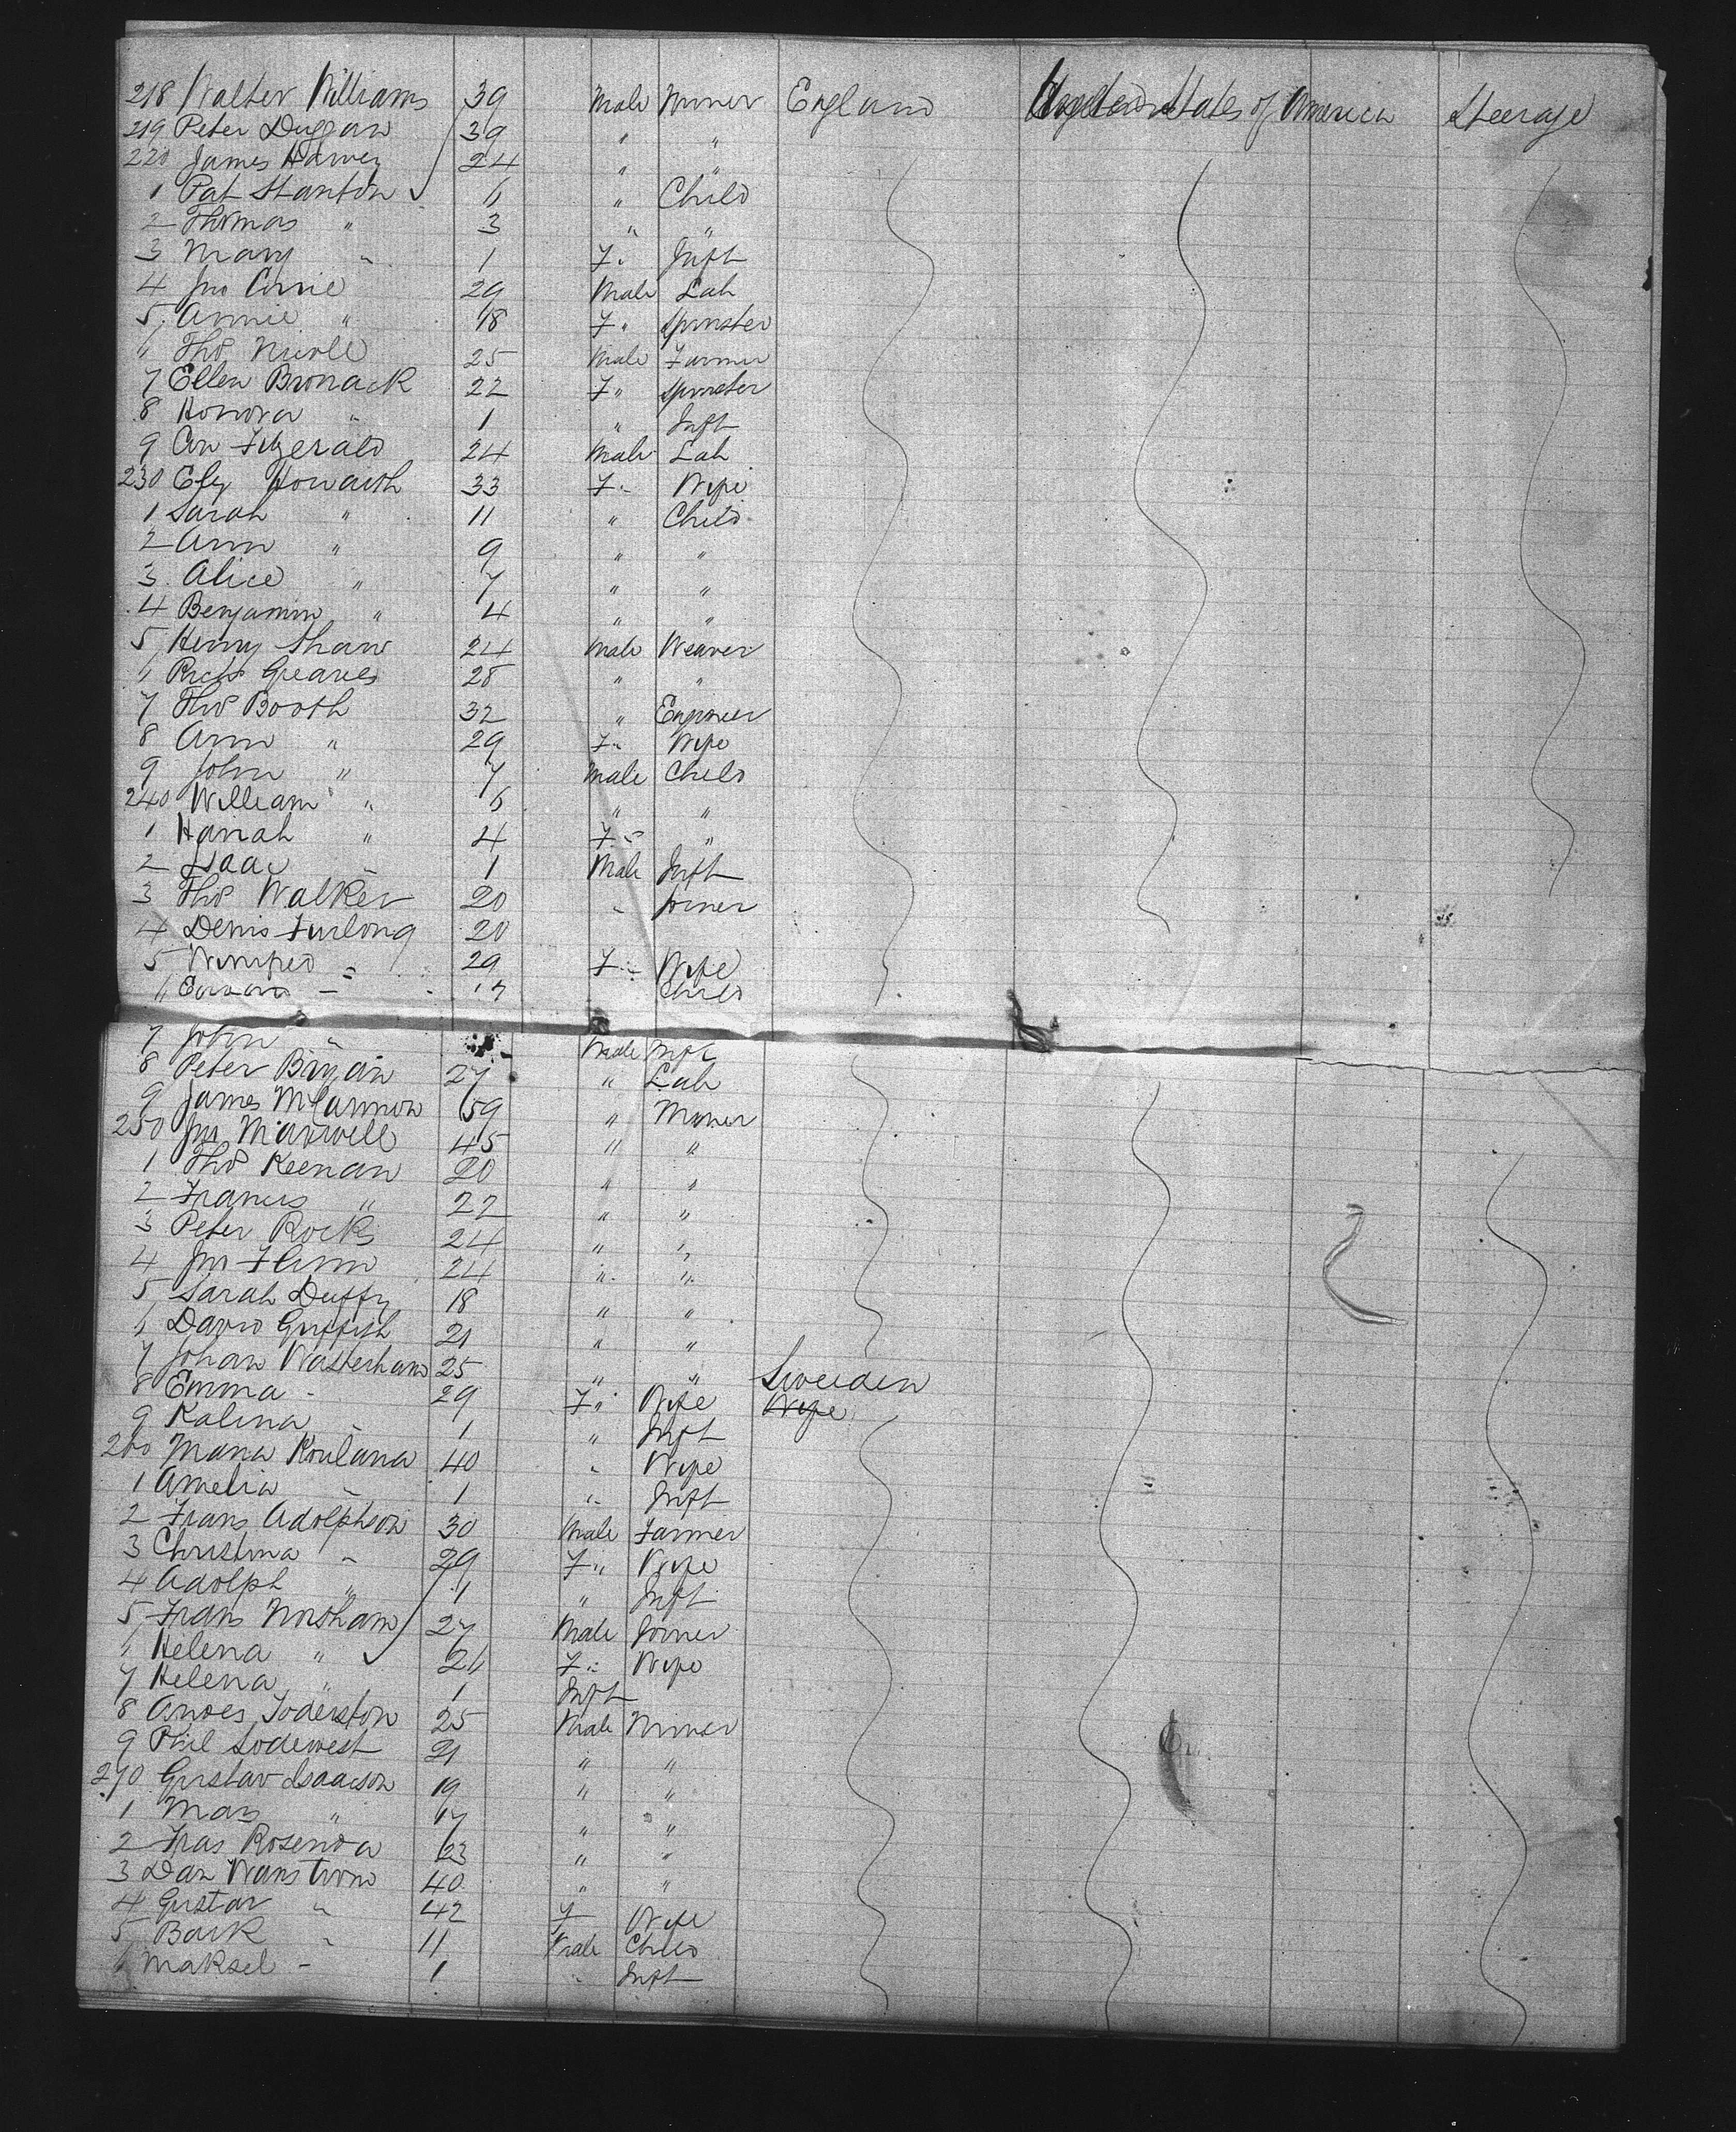 218 Walter Williams 39 Male Miner England United States of America Steerage
219 Peter Duggan 39 " "
220 James Harvey 24 " "
1 Pat Stanton 6 " Child
2 Thomas " 3 " "
3 Mary " 1 F " Inft
4 Jno Corrie 29 Male Lab
5 Annie " 18 F " Spinster
6 Thos Nicoll 25 Male Farmer
7 Ellen 22 F " Spinster
8 Honora " 1 " Inft
9 Fitzgerald 24 Male Lab
230 Eliz Howarth 33 F " Wife
1 Sarah " 11 " Child
2 Ann " 9 " "
3 Alice " 7 " "
4 Benjamin " 4 " "
5 Henry Shaw 24 Male Weaver
6 Richd Greaves 28 " "
7 Thos Booth 32 " Engineer
8 Ann " 29 F " Wife
9 John " 7 Male Child
240 William " 6 " "
1 Hanah " 4 F " "
2 Isaac " 1 Male Inft
3 Thos Walker 20 " Joiner
4 Denis Furlong 20
5 Winifred " 29 F " Wife
6 " Child
7 John " Male Inft
8 Peter Bryan 27 " Lab
9 James McCannon 59 " Miner
250 Jno Maxwell 45 " "
1 Thos Keenan 20 " "
2 Francis " 22 " "
3 Peter Rock 24 " "
4 Jno Flinn 24 " "
5 Sarah Duffy 18 " "
6 David Griffith 21 " "
7 Johan Wasterham 25 " " Sweden
8 Emma " 29 F " Wife Wife
9 Kalina " 1 " Inft
260 Maria 40 " Wife
1 Amelia " 1 " Inft
2 Frans Adolphson 30 Male Farmer
3 Christina " 29 F " Wife
4 Adolph " 1 " Inft
5 Frans 27 Male Joiner
6 Helena " 26 F " Wife
7 Helena " 1 Inft
8 Andes 25 Male Miner
9 21 " "
270 Gustav Isaacson 19 " "
1 " 17 " "
2 Fras 23 " "
3 Dan 40 " "
4 Gustav " 42 F Wife
5 Bark " 11 Male Child
6 Maksel " 1 " Inft